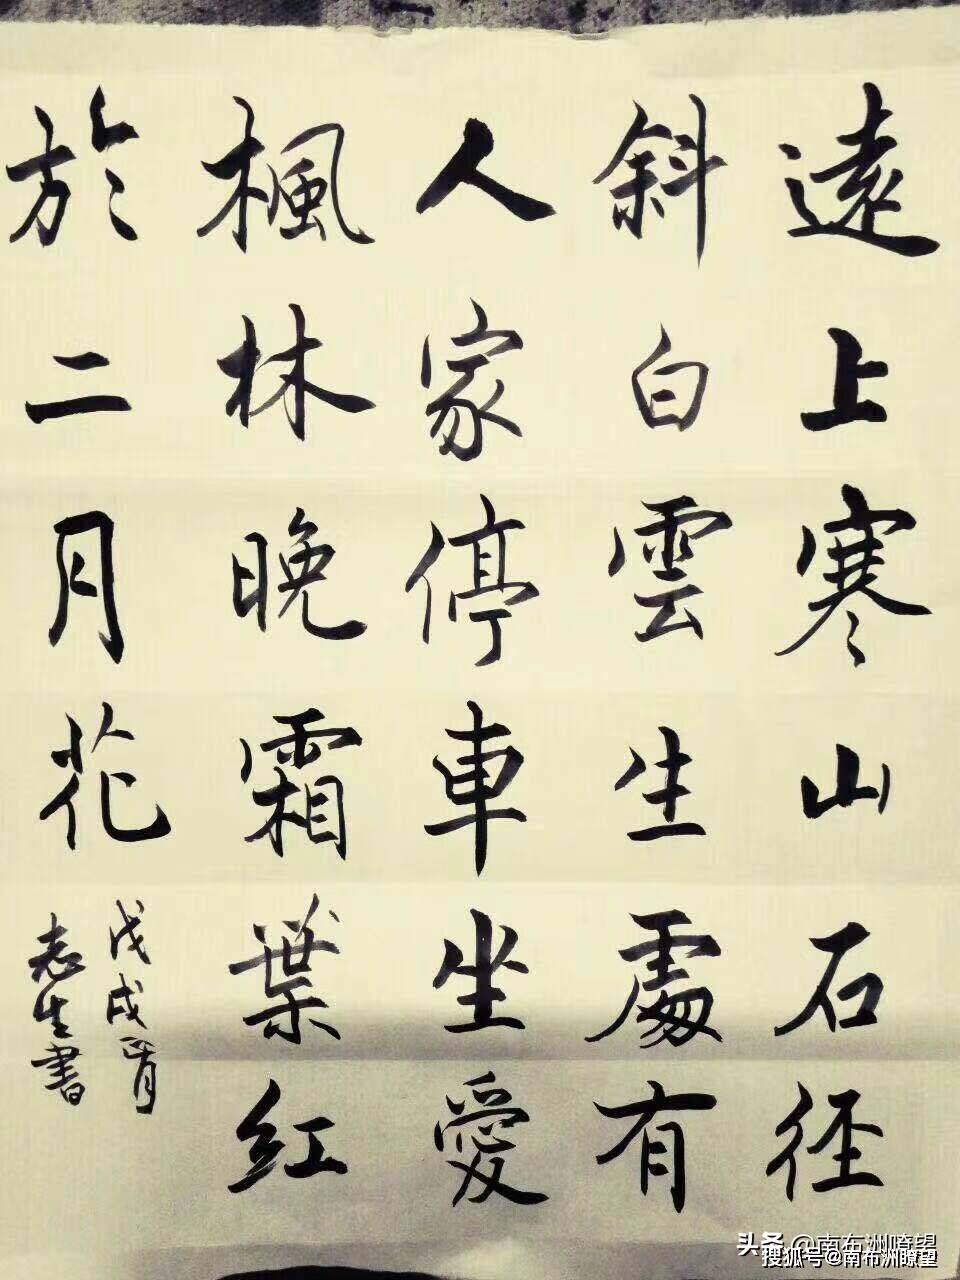 遠上寒山石径
斜白雲生處有
人家停車坐愛
楓林晚霜葉紅
於二月花
戊戌月
志生書
头条 @南布洲瞭望
搜狐号@南布洲瞭望